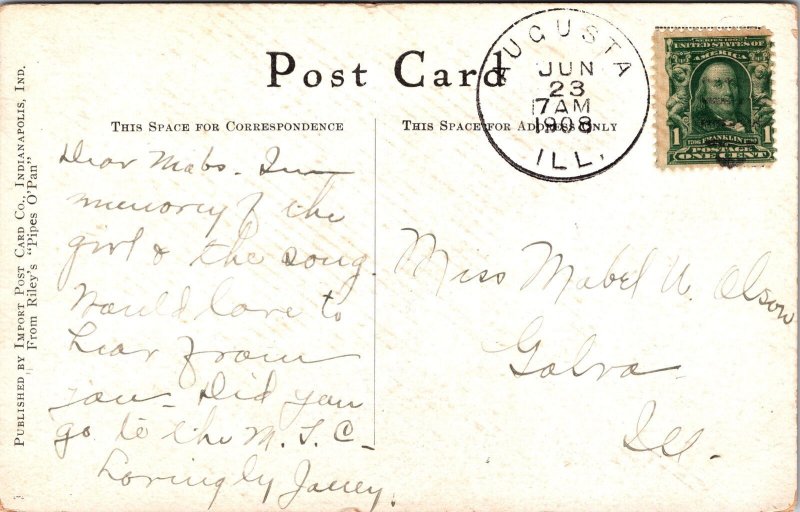 Post Card
THIS SPACE FOR CORRESPONDENCE
THIS SPACE FOR ADDRESS ONLY
PUBLISHED BY IMPORT POST CARD CO., INDIANAPOLIS, IND.
From Riley's "Pipes O'Pan"
AUGUSTA
JUN
23
7AM
1908
ILL.
SERIES 1902
UNITED STATES OF
AMERICA
1 FRANKLIN 1
POSTAGE
ONE CENT
Dear Mabs. In
memory of the
girl & the song.
Would love to
hear from
you - Did you
go to the M. T. C -
Lovingly
Miss Mabel W. Olson
Galva
Ill.